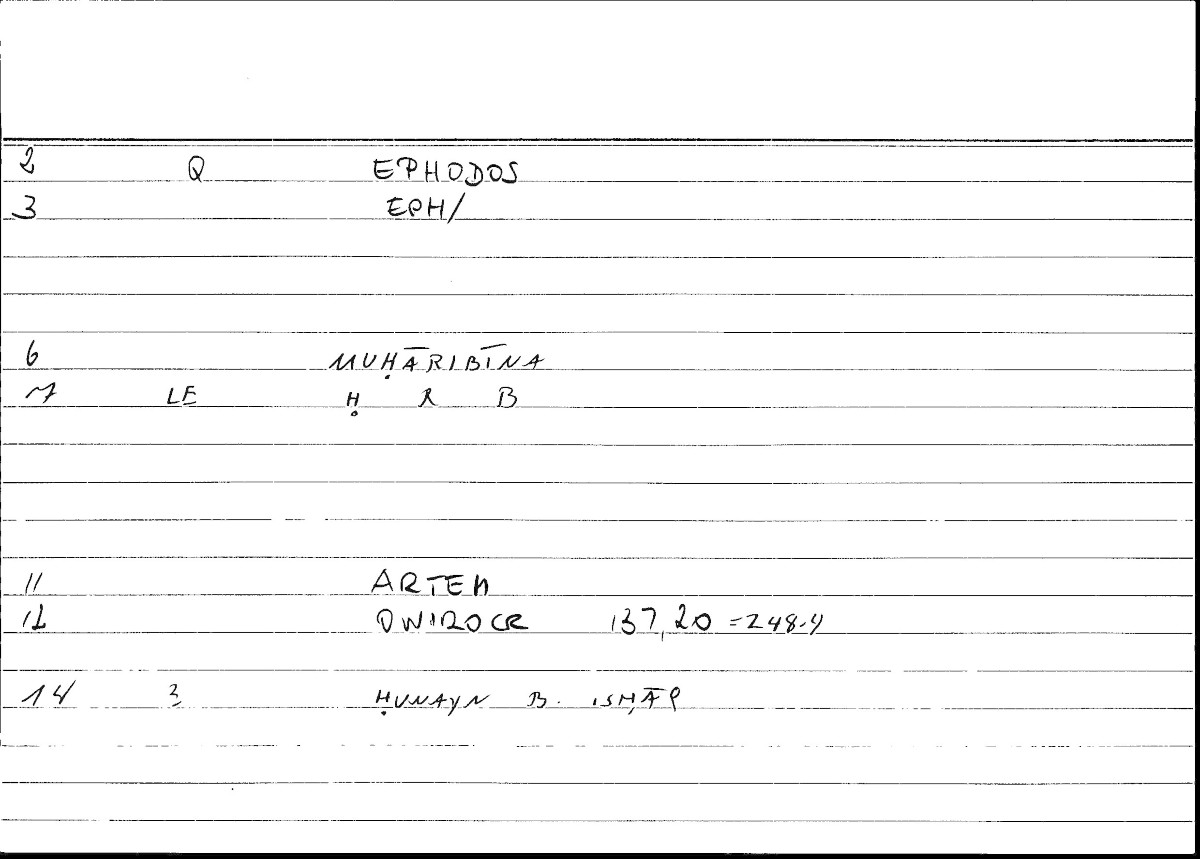 2 Q EPHODOS
3 EPH/
6 MUḤĀRIBĪNA
7 LE Ḥ R B
11 ARTEM
12 ONIROCR 137,20 = 248.4
14 3 ḤUNAYN B. ISḤĀQ